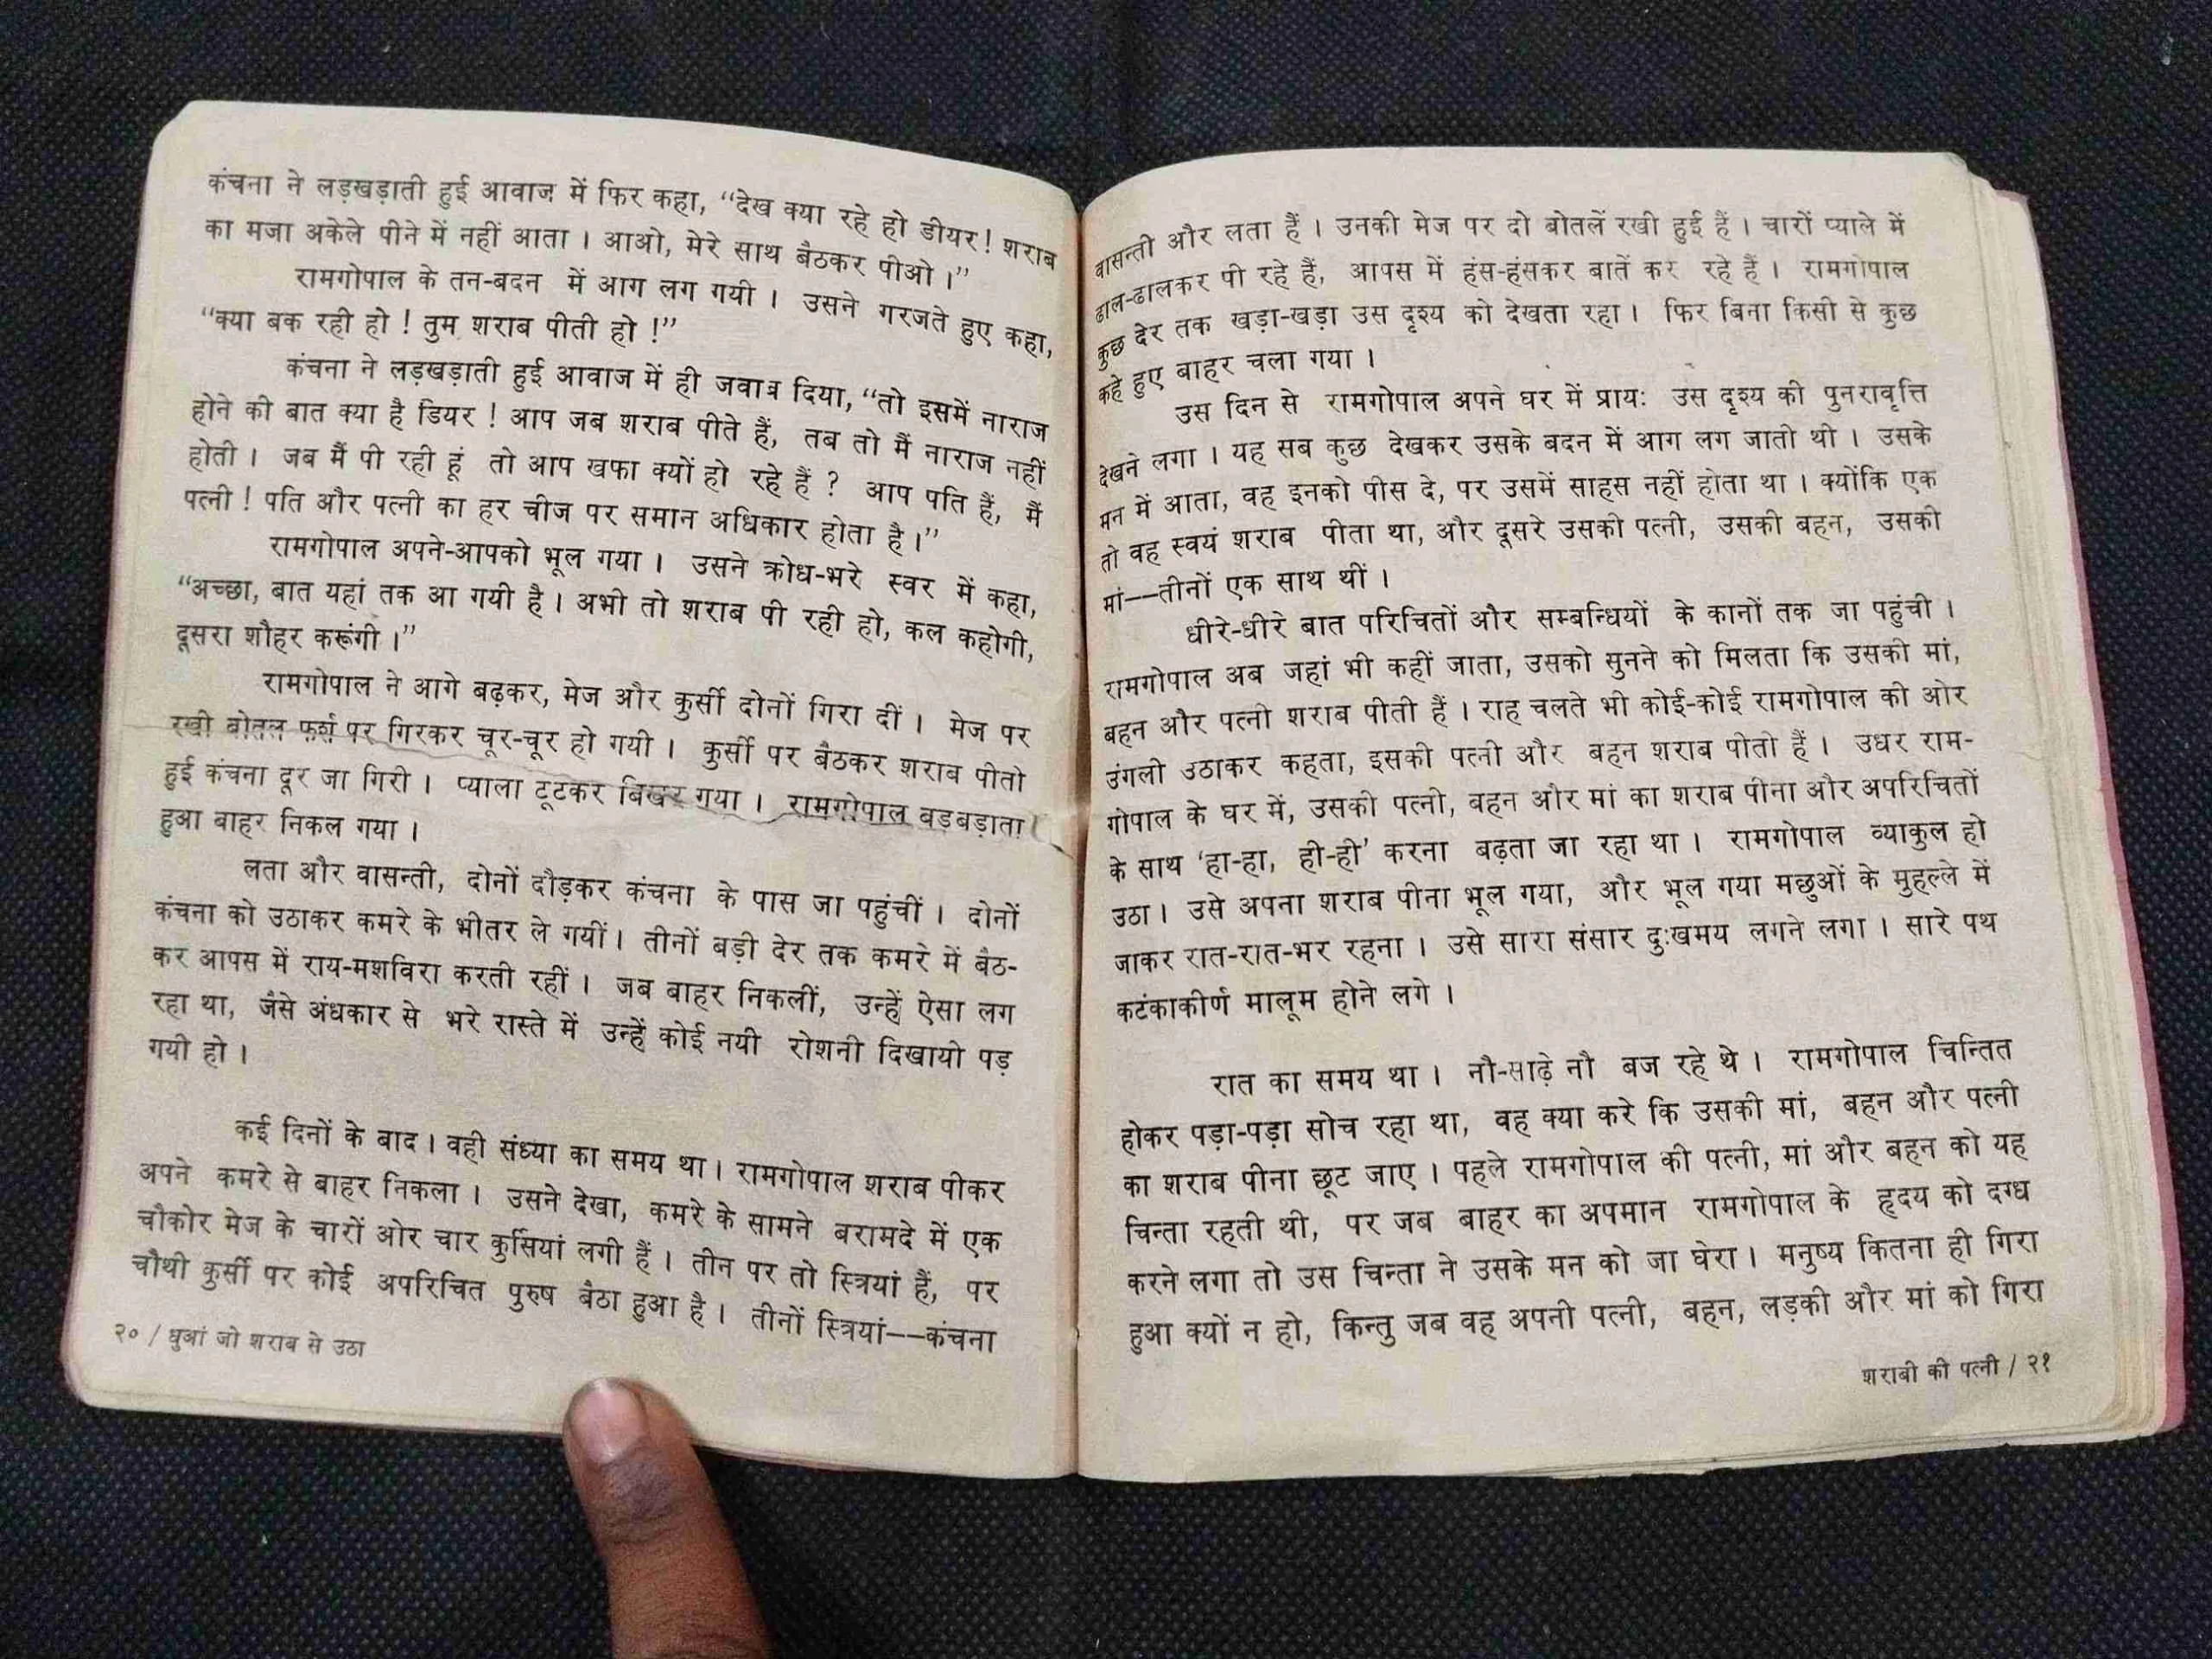 कंचना ने लड़खड़ाती हुई आवाज में फिर कहा, “देख क्या रहे हो डीयर! शराब
का मजा अकेले पीने में नहीं आता । आओ, मेरे साथ बैठकर पीओ ।”
रामगोपाल के तन-बदन में आग लग गयी । उसने गरजते हुए कहा,
“क्या बक रही हो ! तुम शराब पीती हो !”
कंचना ने लड़खड़ाती हुई आवाज में ही जवाब दिया, “तो इसमें नाराज
होने की बात क्या है डियर ! आप जब शराब पीते हैं, तब तो मैं नाराज नहीं
होती । जब मैं पी रही हूं तो आप खफा क्यों हो रहे हैं ? आप पति हैं, मैं
पत्नी ! पति और पत्नी का हर चीज पर समान अधिकार होता है ।”
रामगोपाल अपने-आपको भूल गया । उसने क्रोध-भरे स्वर में कहा,
“अच्छा, बात यहां तक आ गयी है । अभी तो शराब पी रही हो, कल कहोगी,
दूसरा शौहर करूंगी ।”
रामगोपाल ने आगे बढ़कर, मेज और कुर्सी दोनों गिरा दीं । मेज पर
रखी बोतल फर्श पर गिरकर चूर-चूर हो गयी । कुर्सी पर बैठकर शराब पीती
हुई कंचना दूर जा गिरी । प्याला टूटकर बिखर गया । रामगोपाल बड़बड़ाता
हुआ बाहर निकल गया ।
लता और वासन्ती, दोनों दौड़कर कंचना के पास जा पहुंचीं । दोनों
कंचना को उठाकर कमरे के भीतर ले गयीं । तीनों बड़ी देर तक कमरे में बैठ-
कर आपस में राय-मशविरा करती रहीं । जब बाहर निकलीं, उन्हें ऐसा लग
रहा था, जैसे अंधकार से भरे रास्ते में उन्हें कोई नयी रोशनी दिखायी पड़
गयी हो ।
कई दिनों के बाद । वही संध्या का समय था । रामगोपाल शराब पीकर
अपने कमरे से बाहर निकला । उसने देखा, कमरे के सामने बरामदे में एक
चौकोर मेज के चारों ओर चार कुर्सियां लगी हैं । तीन पर तो स्त्रियां हैं, पर
चौथी कुर्सी पर कोई अपरिचित पुरुष बैठा हुआ है । तीनों स्त्रियां——कंचना
२० / धुआं जो शराब से उठा
वासन्ती और लता हैं । उनकी मेज पर दो बोतलें रखी हुई हैं । चारों प्याले में
ढाल-ढालकर पी रहे हैं, आपस में हंस-हंसकर बातें कर रहे हैं । रामगोपाल
कुछ देर तक खड़ा-खड़ा उस दृश्य को देखता रहा । फिर बिना किसी से कुछ
कहे हुए बाहर चला गया ।
उस दिन से रामगोपाल अपने घर में प्रायः उस दृश्य की पुनरावृत्ति
देखने लगा । यह सब कुछ देखकर उसके बदन में आग लग जाती थी । उसके
मन में आता, वह इनको पीस दे, पर उसमें साहस नहीं होता था । क्योंकि एक
तो वह स्वयं शराब पीता था, और दूसरे उसकी पत्नी, उसकी बहन, उसकी
मां——तीनों एक साथ थीं ।
धीरे-धीरे बात परिचितों और सम्बन्धियों के कानों तक जा पहुंची ।
रामगोपाल अब जहां भी कहीं जाता, उसको सुनने को मिलता कि उसकी मां,
बहन और पत्नी शराब पीती हैं । राह चलते भी कोई-कोई रामगोपाल की ओर
उंगली उठाकर कहता, इसकी पत्नी और बहन शराब पीती हैं । उधर राम-
गोपाल के घर में, उसकी पत्नी, बहन और मां का शराब पीना और अपरिचितों
के साथ ‘हा-हा, ही-ही’ करना बढ़ता जा रहा था । रामगोपाल व्याकुल हो
उठा । उसे अपना शराब पीना भूल गया, और भूल गया मछुओं के मुहल्ले में
जाकर रात-रात-भर रहना । उसे सारा संसार दुःखमय लगने लगा । सारे पथ
कटंकाकीर्ण मालूम होने लगे ।
रात का समय था । नौ-साढ़े नौ बज रहे थे । रामगोपाल चिन्तित
होकर पड़ा-पड़ा सोच रहा था, वह क्या करे कि उसकी मां, बहन और पत्नी
का शराब पीना छूट जाए । पहले रामगोपाल की पत्नी, मां और बहन को यह
चिन्ता रहती थी, पर जब बाहर का अपमान रामगोपाल के हृदय को दग्ध
करने लगा तो उस चिन्ता ने उसके मन को जा घेरा । मनुष्य कितना ही गिरा
हुआ क्यों न हो, किन्तु जब वह अपनी पत्नी, बहन, लड़की और मां को गिरा
शराबी की पत्नी / २१